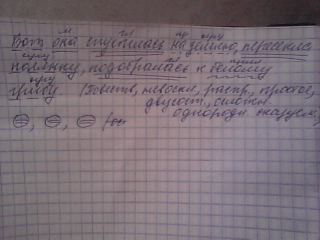 м гл пр сущ
Вот она спустилась на землю, пересекла
сущ гл прил
полянку, подобралась к белому
сущ
грибу (Повеств., невоскл., распр., простое,
двусост., осложн.
однородн. сказуем.,